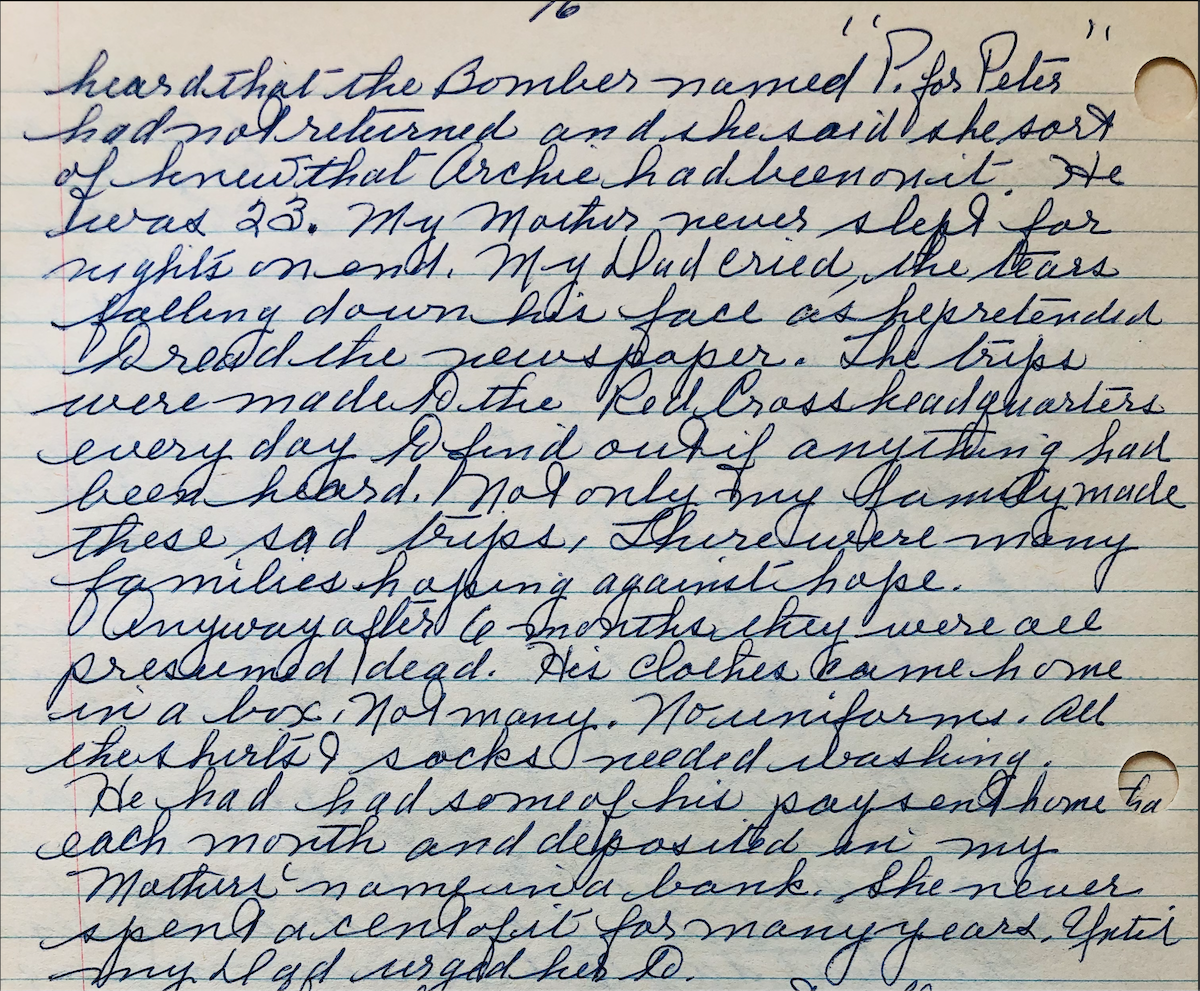 16
heard that the Bomber named "P. for Peter"
had not returned and she said she sort
of knew that Archie had been on it. He
was 23. My Mother never slept for
nights on end. My Dad cried, the tears
falling down his face as he pretended
to read the newspaper. The trips
were made to the Red Cross headquarters
every day to find out if anything had
been heard. Not only my family made
these sad trips, There were many
families hoping against hope.
Anyway after 6 months they were all
presumed dead. His clothes came home
in a box. Not many. No uniforms. All
the shirts & socks needed washing.
He had had some of his pay sent home
each month and deposited in my
Mothers' name in a bank. She never
spent a cent of it for many years. Until
my Dad urged her to.